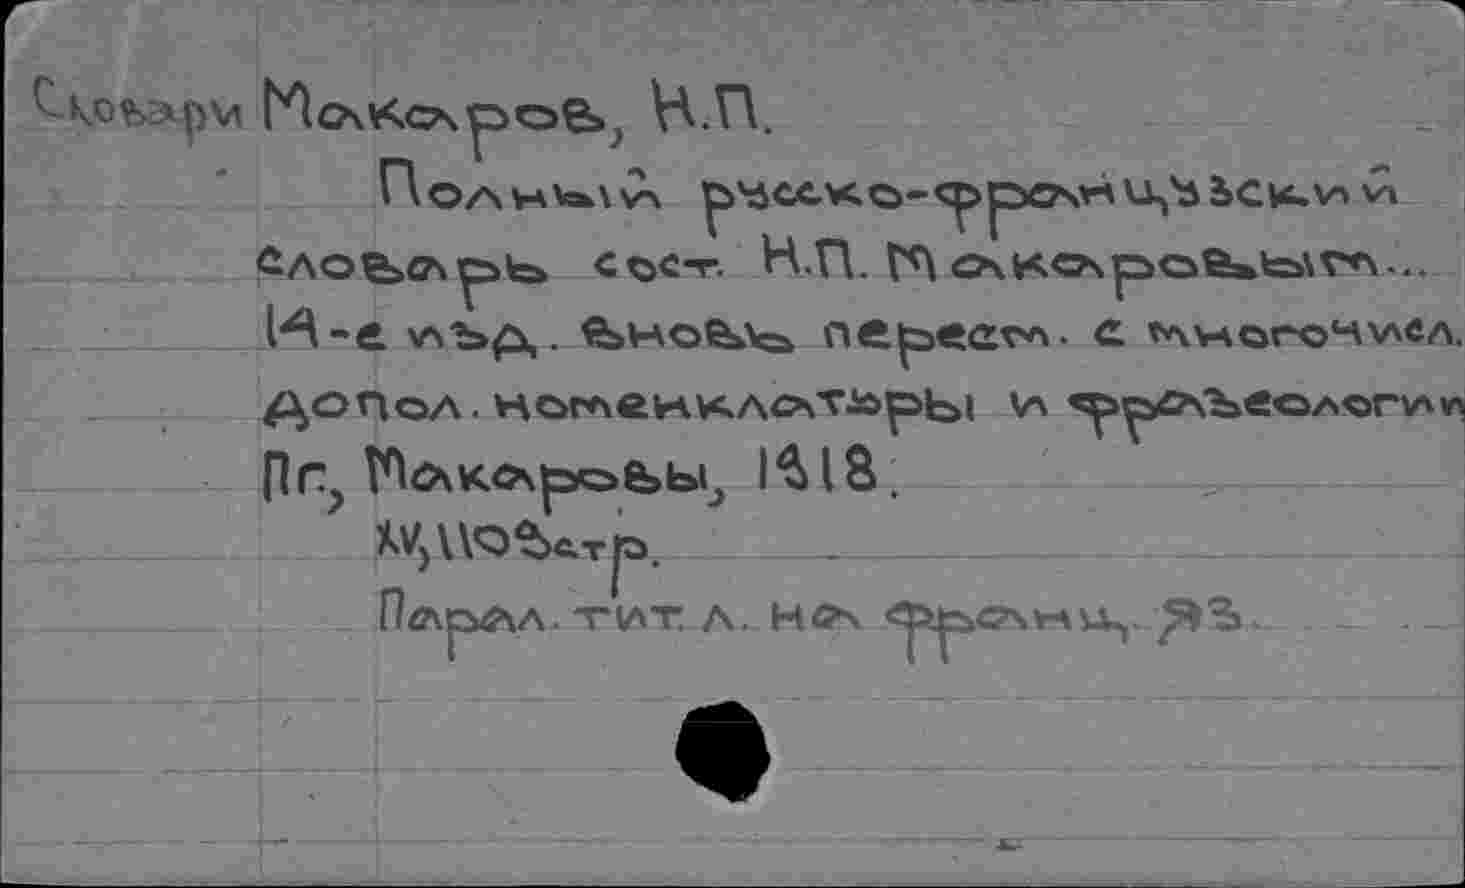 Словари Макаров, Н.П.
Полный русско-французский
словарь сост. Н.П. Макаровым...
14-е изд. вновь пересм. с многочисл.
допол. номенклатуры и фразеологии
Пг., Макаровы, 1918.
стр.
Парал. тит. л. на франц. яз.